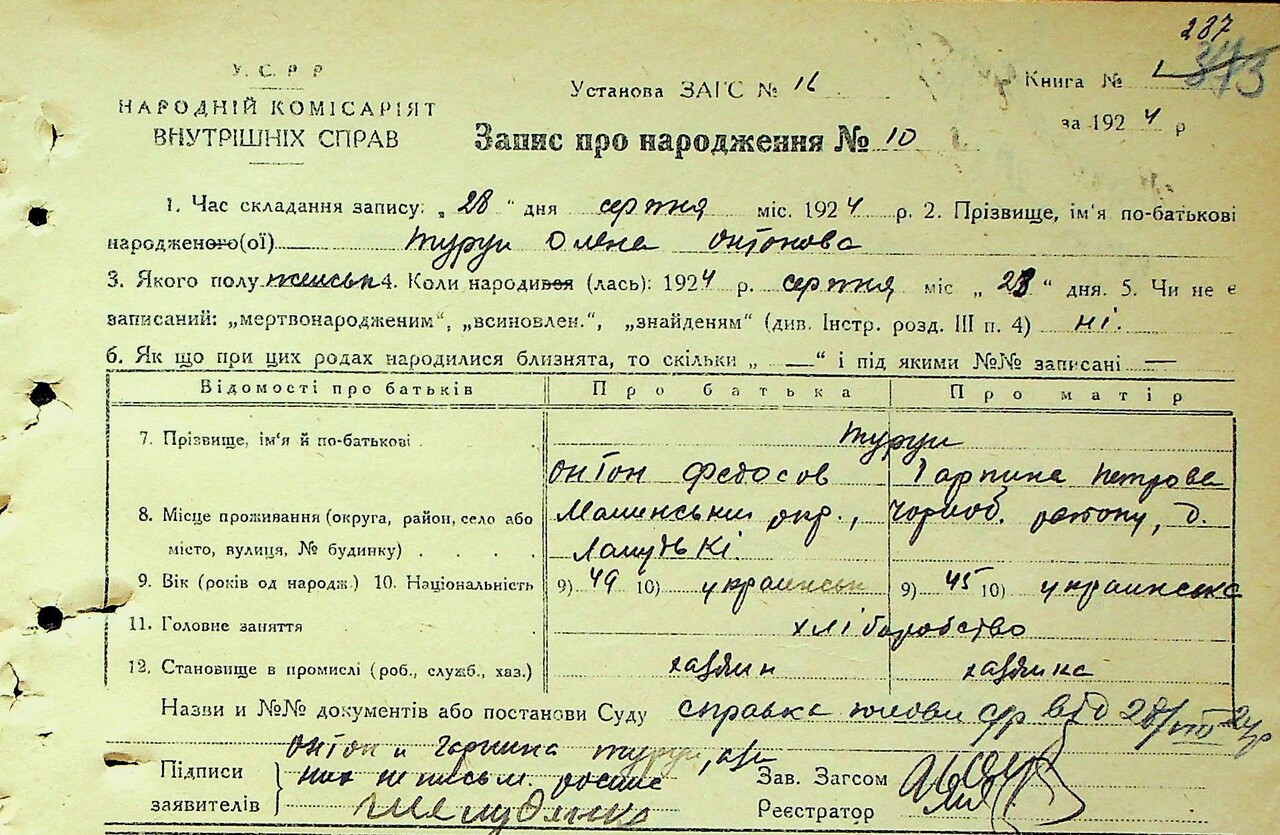 287
373
У. С. Р. Р
НАРОДНІЙ КОМІСАРІЯТ
ВНУТРІШНІХ СПРАВ
Установа ЗАГС № 16
Книга № 1
за 1924 р
Запис про народження № 10
1. Час складання запису: „ 28 “ дня серпня міс. 1924 р. 2. Прізвище, ім'я по-батькові
народженого(ої) Турун Олена Онтонова
3. Якого полу женськ 4. Коли народився (лась): 1924 р. серпня міс „ 23 “ дня. 5. Чи не є
записаний: „мертвонародженим“, „всиновлен.“, „знайденям“ (див. Інстр. розд. III п. 4) ні.
6. Як що при цих родах народилися близнята, то скільки „ — “ і під якими №№ записані —
Відомості про батьків Про батька Про матір
7. Прізвище, ім'я й по-батькові . Турун
Онтон Федосов Гарпина Петрова
8. Місце проживання (округа, район, село або Малинський окр., Чорноб. району, д.
місто, вулиця, № будинку) . . . .
9. Вік (років од народж.) 10. Національність 9) 49 10) украинськ 9) 45 10) украинська
11. Головне заняття хліборобство
12. Становище в промислі (роб., служб., хаз.) хазяин хазяйка
Назви и №№ документів або постанови Суду справка голови с/р від 28/VIII 24р
Підписи Онтон и Гарпина Турун,
заявителів
Зав. Загсом
Реєстратор